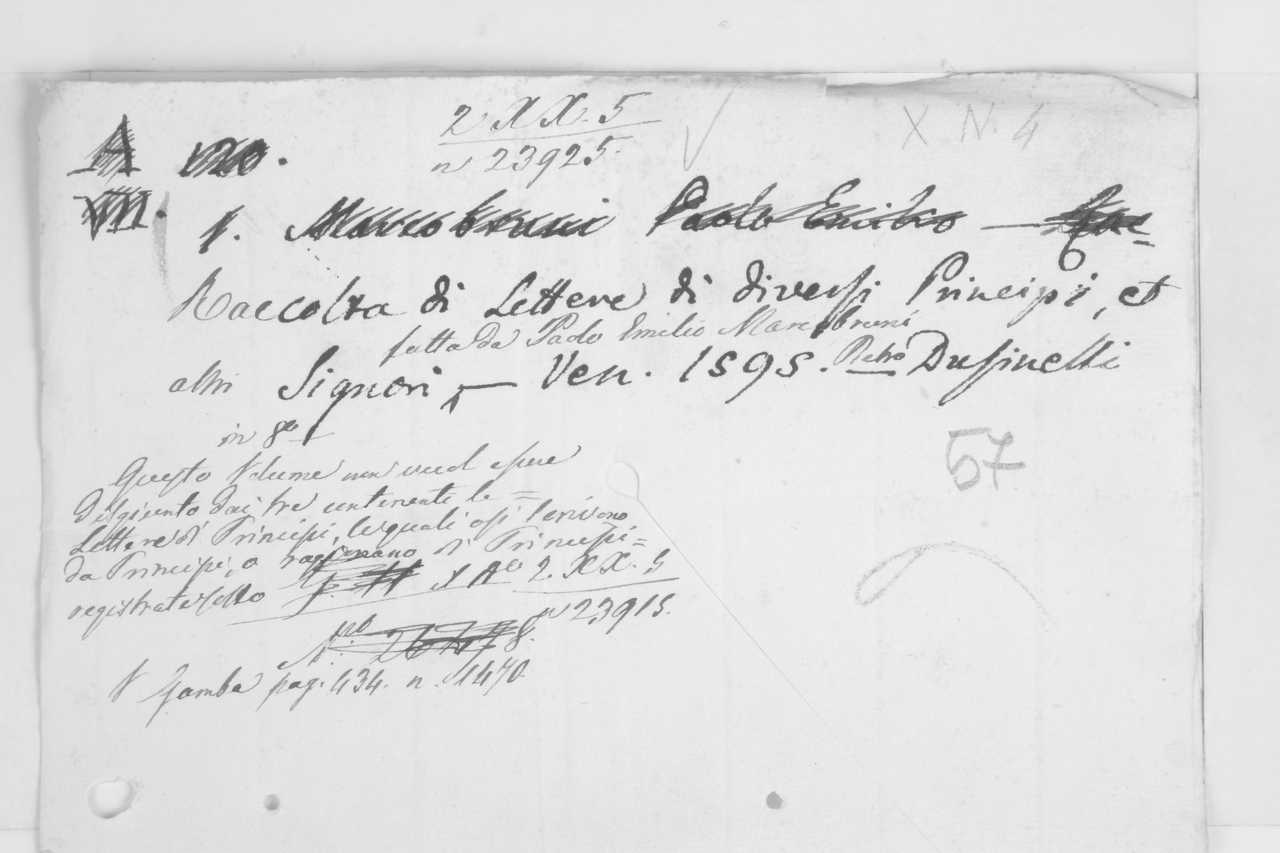 2 XX. 5
n 23925.
X N. 4
A
VIII.
1. Marcobruni Paolo Emilio —
Raccolta di Lettere di diversi Principi, et
fatta da Paolo Emilio Marcobruni
altri Signori, — Ven. 1595. Pietro Dusinelli
in 8º
57
Questo Volume non vuol essere
disgiunto dai tre contenenti le =
Lettere di Principi, le quali o si scrivono
da Principi, o ragionano di Principi =
registrate sotto 2. XX. 5
nº 23915.
V Gamba pag. 434. n. 1470.